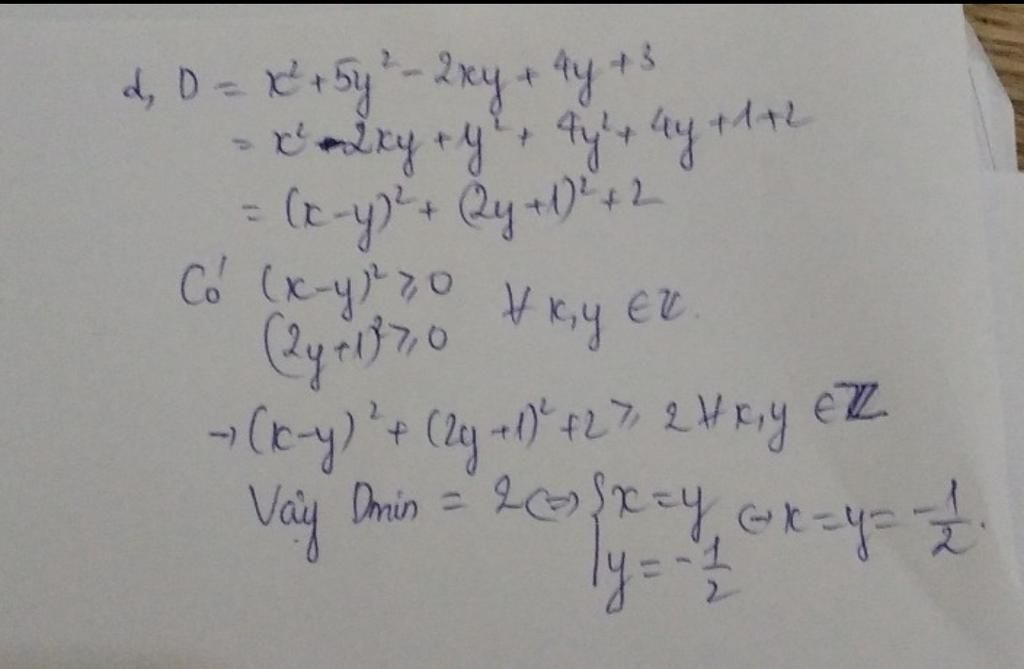 d, D = x² + 5y² - 2xy + 4y + 3
= x² - 2xy + y² + 4y² + 4y + 1 + 2
= (x-y)² + (2y+1)² + 2
Có (x-y)² ≥ 0
(2y+1)² ≥ 0 ∀ x,y ∈ Z.
→ (x-y)² + (2y+1)² + 2 ≥ 2 ∀ x,y ∈ Z
Vậy Dmin = 2 ⇔ { x = y ⇔ x = y = -1/2.
y = -1/2